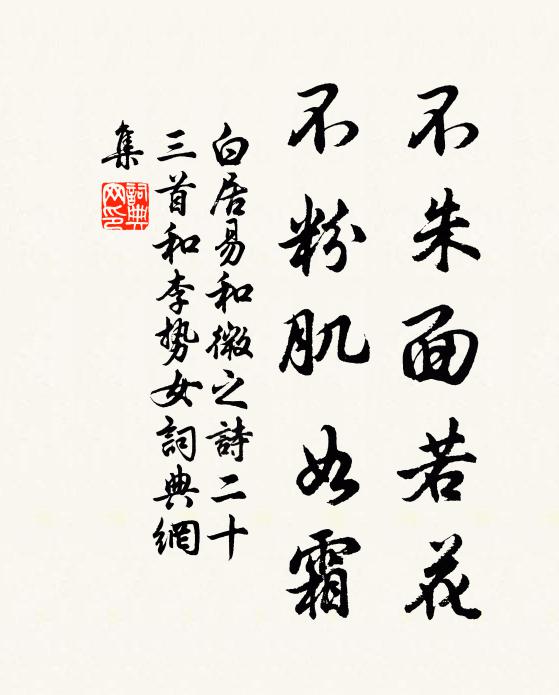 不朱面若花
不粉肌如霜
白居易和微之詩二十
三首和李勢女詞典網
集
詞典
网印